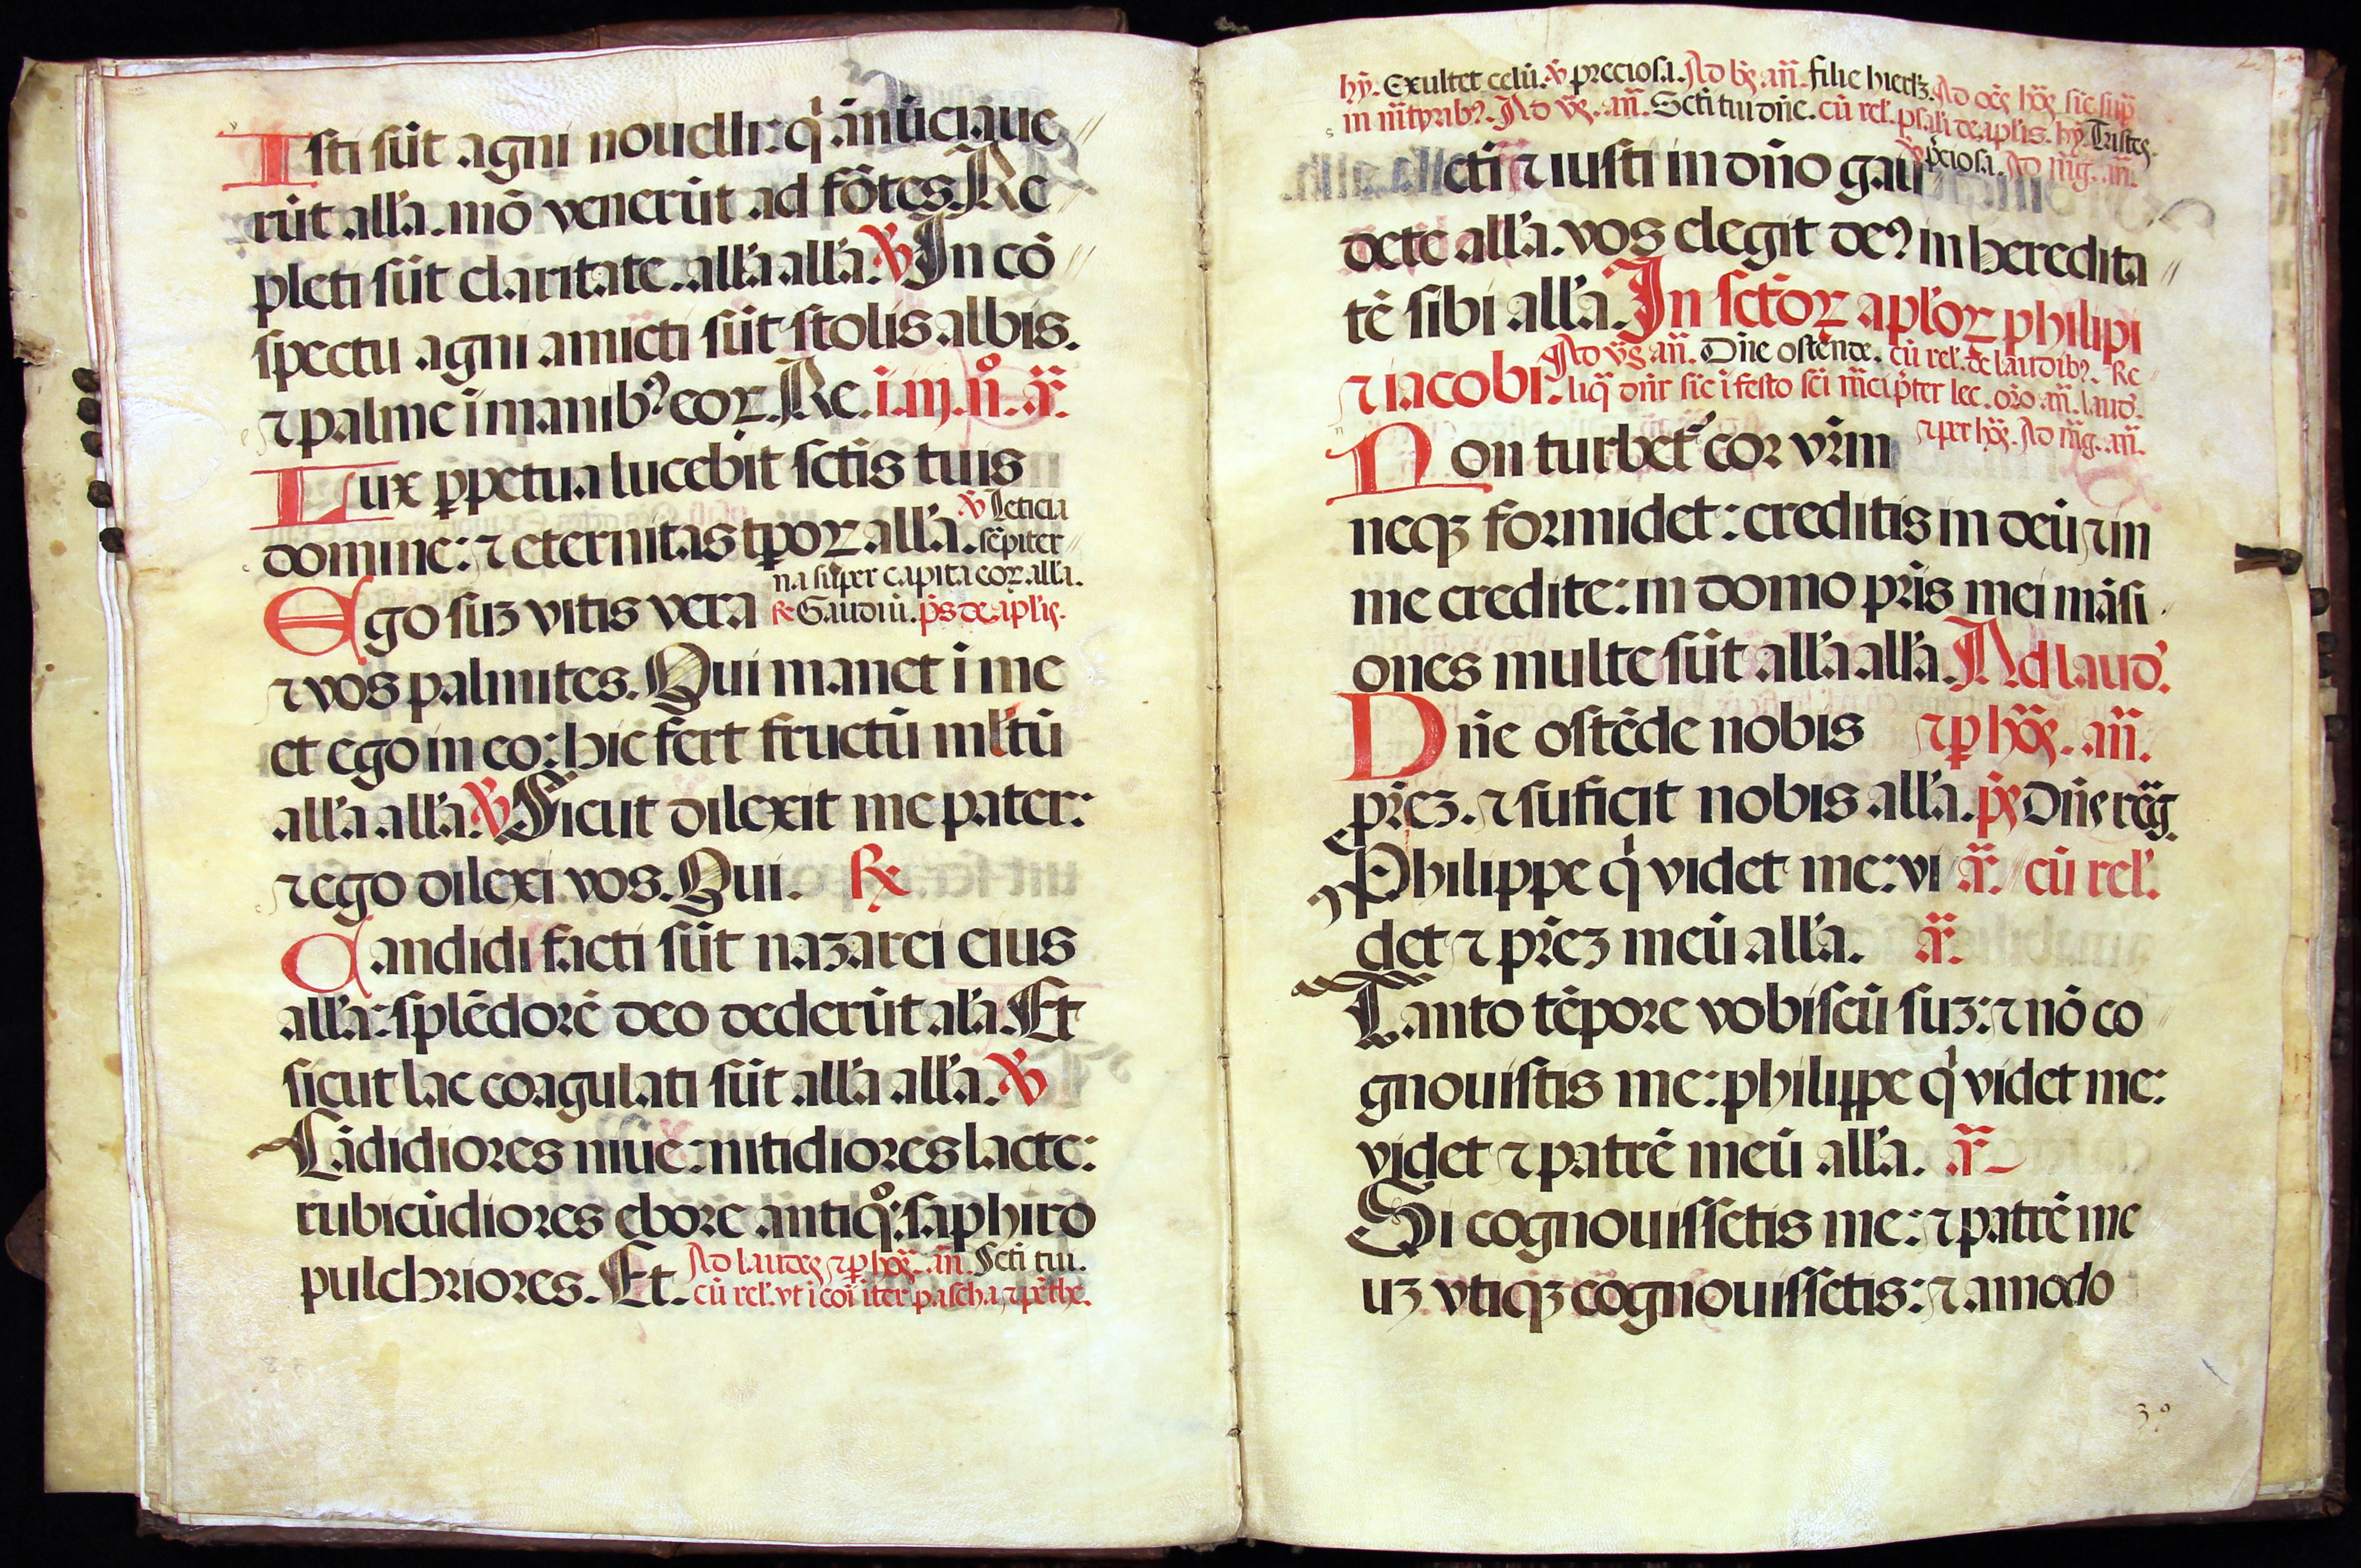 Isti sūt agni nouelli: q̇ ānūciaue
rūt all'a. mō venerūt ad fōtes. Re
pleti sūt claritate. all'a all'a. ℣ In cō
spectu agni amicti sūt stolis albis.
⁊ palme i manibꝰ eoꝝ. Re. i. iij. n̊. a̅r̅.
Lux ꝑpetua lucebit sctis tuis
domine: ⁊ eternitas tpoꝝ all'a. ℣ Leticia
sēpiter
na super capita eoꝝ all'a.
Ego suꝫ vitis vera ℞ Gaudiū. p̄s de apl'is.
⁊ vos palmites. Qui manet i me
et ego in eo: hic fert fructū ml'tū
all'a all'a. ℣ Sicut dilexit me pater:
⁊ ego dilexi vos. Qui. ℞
Candidi facti sūt nazarei eius
all'a: splēdorē deo dederūt al'a. Et
sicut lac coagulati sūt all'a all'a. ℣
Cādidiores niue: nitidiores lacte:
rubicūdiores ebore antiq̊: saphiro
pulchriores. Et. Ad laudes ⁊ ꝑ hōs. an̄. Scti tui.
cū rel'. vt i coī iter pascha ⁊ pēthe.
hȳ. Exultet celū. ℣ preciosa. Ad bs̄. an̄. filie hierl'ꝫ. Ad oēs hōs sic sup̄
in m̄tyribꝰ. Ad vs̄. an̄. Scti tui dn̄e. cū rel'. psal'i de apl'is. hȳ. Tristes.
℣ p̄ciosa. Ad mḡ. an̄.
Scti ⁊ iusti in dn̄o gau
dete all'a. vos elegit deꝰ in heredita
tē sibi all'a. In sctōꝝ apl'oꝝ philipi
⁊ iacobi. Ad vs̄ an̄. Dn̄e ostende. cū rel'. de laudibꝰ. Re
liq̄ dn̄r sic i festo sci m̄ci p̄ter lec. or̄o. an̄. laud'.
⁊ per hōs. Ad mḡ. an̄.
Non turbet᷑ cor vrm̄
neqꝫ formidet: creditis in deū ⁊ in
me credite: in domo pr̄is mei māsi
ones multe sūt all'a all'a. Ad laud'.
Dn̄e ostēde nobis ⁊ ꝑ hōs. an̄.
pr̄eꝫ. ⁊ suficit nobis all'a. ps̄ Dn̄s reḡ.
Philippe q̇ videt me: vi a̅r̅. cū rel'.
det ⁊ pr̄eꝫ meū all'a. a̅r̅.
Tanto tēpore vobiscū suꝫ: ⁊ nō co
gnouistis me: philippe q̇ videt me:
videt ⁊ patrē meū all'a. a̅r̅
Si cognouissetis me: ⁊ patrē me
uꝫ vtiqꝫ cognouissetis: ⁊ amodo
30